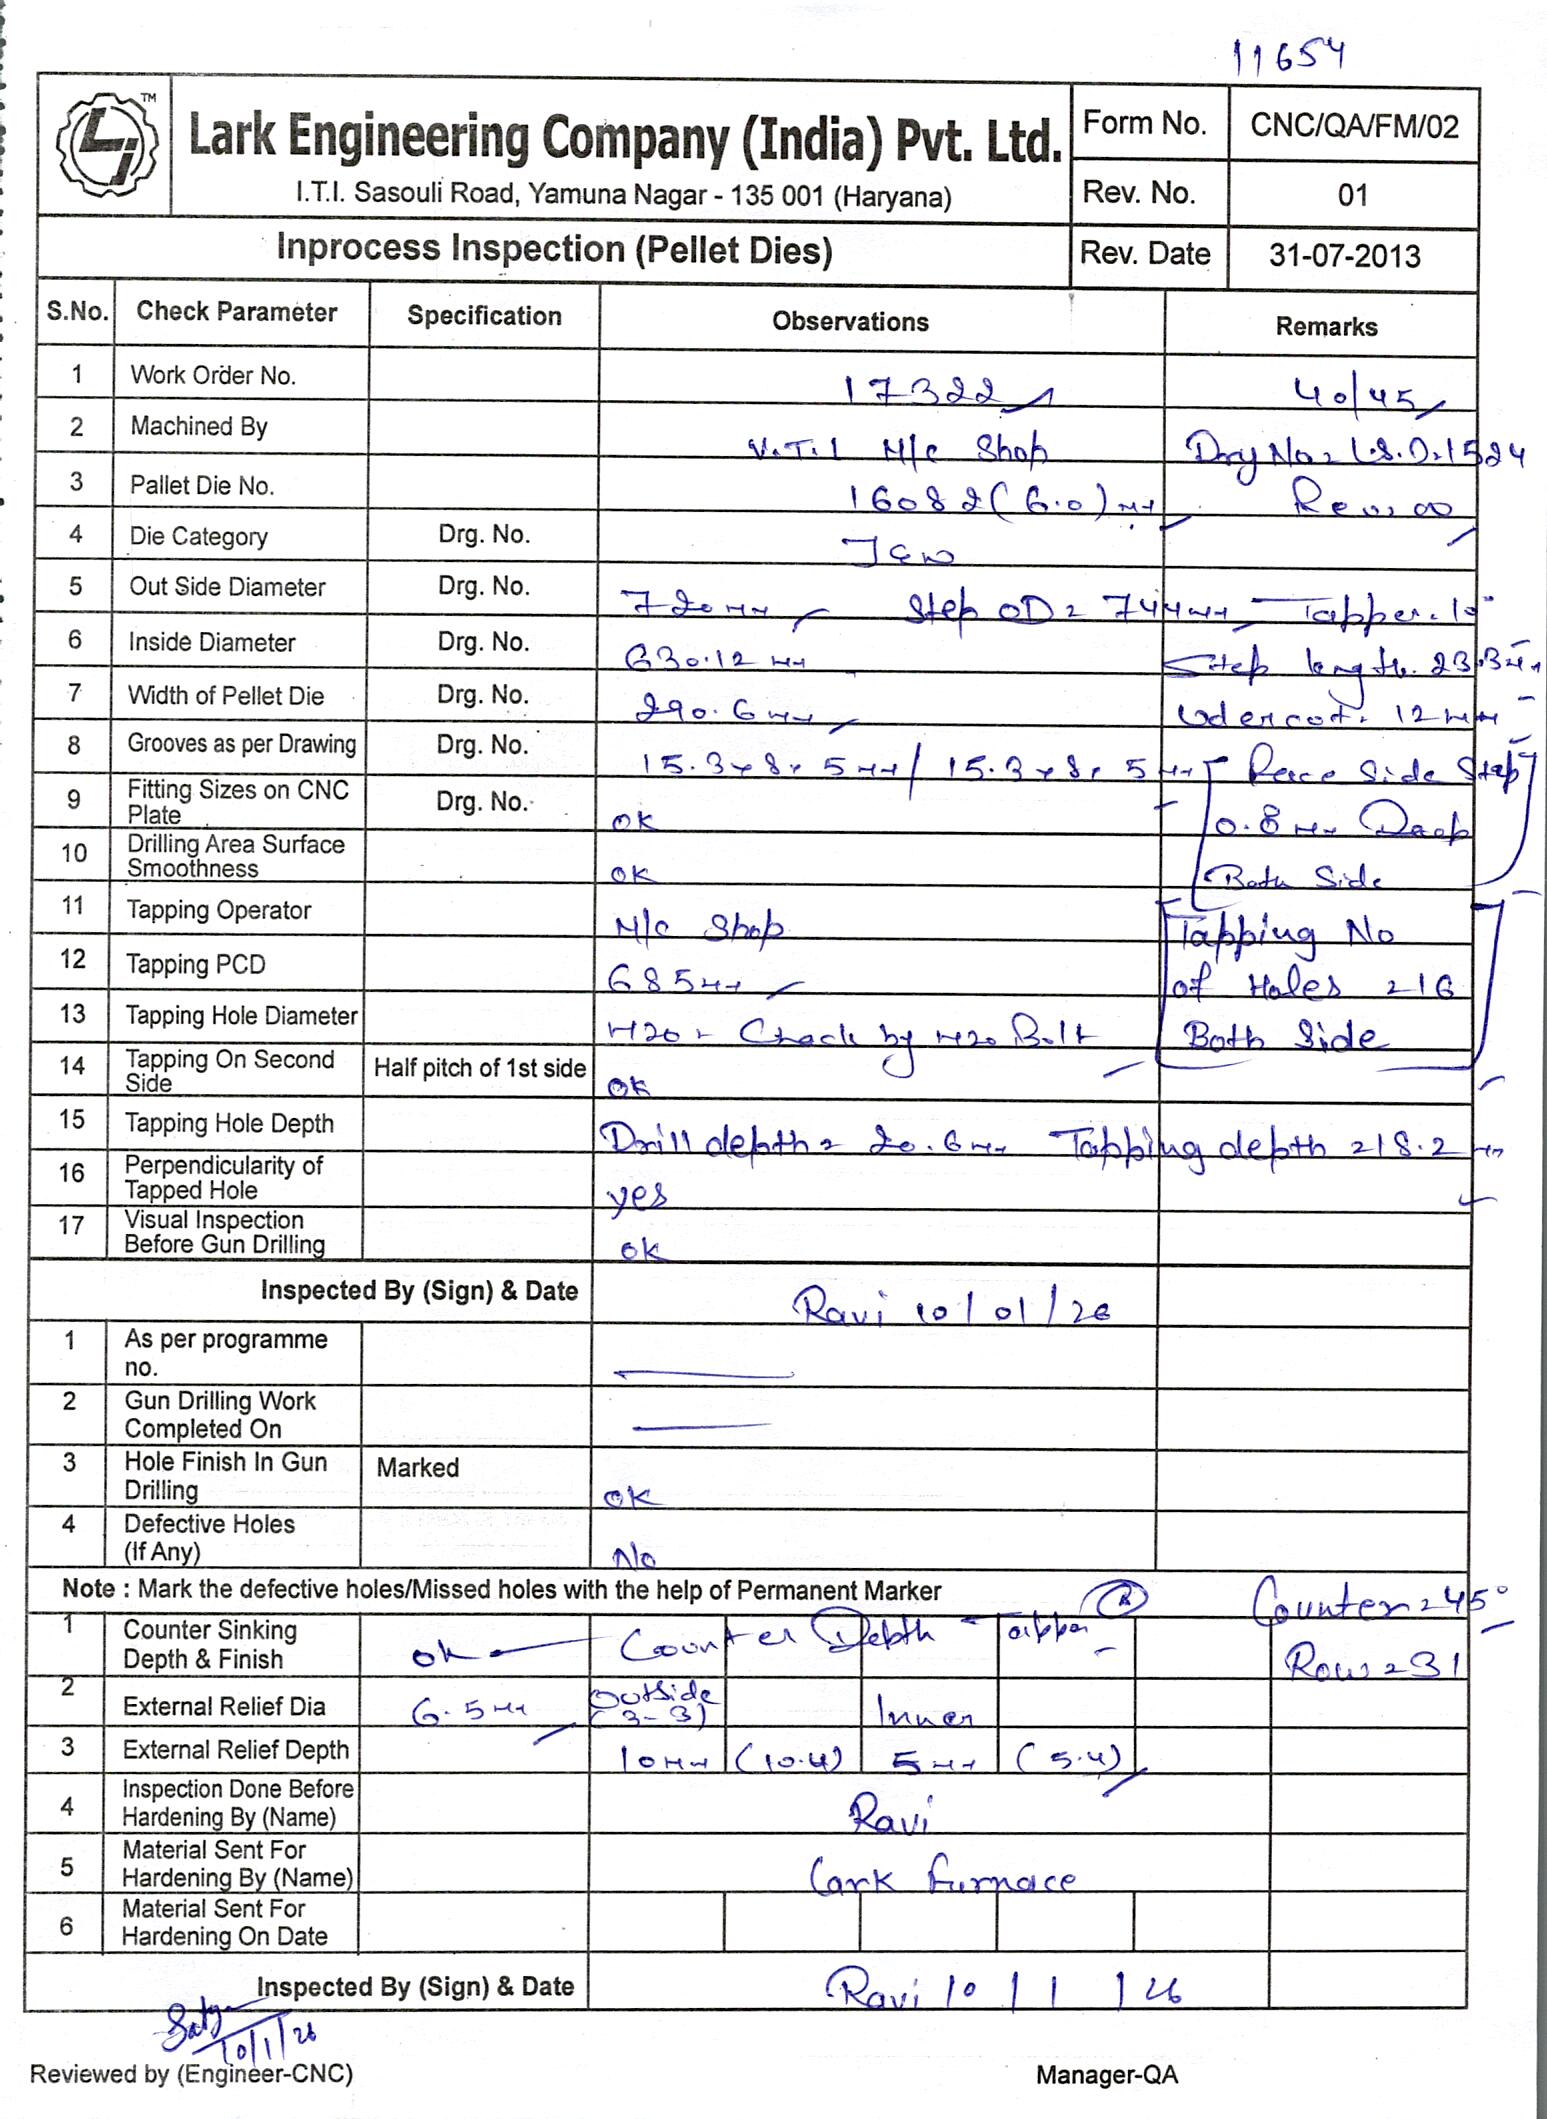 11654
TM
Lark Engineering Company (India) Pvt. Ltd.
I.T.I. Sasouli Road, Yamuna Nagar - 135 001 (Haryana)
Form No. CNC/QA/FM/02
Rev. No. 01
Inprocess Inspection (Pellet Dies)
Rev. Date 31-07-2013
S.No. Check Parameter Specification Observations Remarks
1 Work Order No. 17322 40/45
2 Machined By V.T.L M/c Shop Drg No =
3 Pallet Die No. 16082 (6.0) mm Rev. 00
4 Die Category Drg. No.
5 Out Side Diameter Drg. No. 720 mm Step OD = 744 mm Tapper. 10°
6 Inside Diameter Drg. No. 630.12 mm Step length. 23.3 mm
7 Width of Pellet Die Drg. No. 290.6 mm 12 mm
8 Grooves as per Drawing Drg. No. 15.3 x 8 x 5 mm / 15.3 x 8 x 5 mm Side Step
9 Fitting Sizes on CNC Plate Drg. No. ok 0.8 mm Deep
10 Drilling Area Surface Smoothness ok Both Side
11 Tapping Operator M/c Shop Tapping No
12 Tapping PCD 685 mm of Holes = 16
13 Tapping Hole Diameter M20 - Check by M20 Bolt Both Side
14 Tapping On Second Side Half pitch of 1st side ok
15 Tapping Hole Depth Drill depth = 20.6 mm Tapping depth = 18.2 mm
16 Perpendicularity of Tapped Hole yes
17 Visual Inspection Before Gun Drilling ok
Inspected By (Sign) & Date Ravi 10/01/26
1 As per programme no.
2 Gun Drilling Work Completed On
3 Hole Finish In Gun Drilling Marked ok
4 Defective Holes (If Any) No
Note : Mark the defective holes/Missed holes with the help of Permanent Marker Counter = 45°
1 Counter Sinking Depth & Finish ok Counter Depth - Tapper Row = 31
2 External Relief Dia 6.5 mm Outside (3-3) Inner
3 External Relief Depth 10 mm (10.4) 5 mm (5.4)
4 Inspection Done Before Hardening By (Name) Ravi
5 Material Sent For Hardening By (Name) Lark Furnace
6 Material Sent For Hardening On Date
Inspected By (Sign) & Date Ravi 10/1/26
10/1/26
Reviewed by (Engineer-CNC) Manager-QA